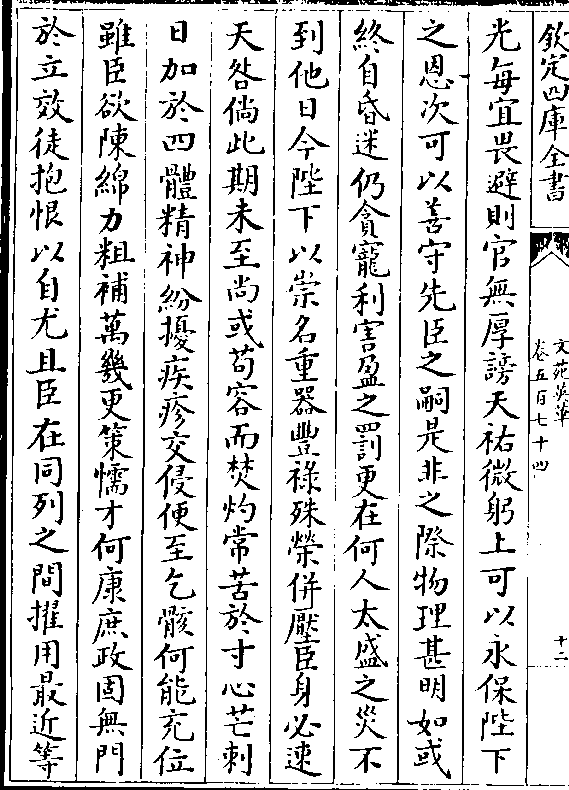 欽定四庫全書
文苑英華
卷五百七十四
十二
光每宜畏避則官無厚謗天祐微躬上可以永保陛下
之恩次可以善守先臣之嗣是非之際物理甚明如或
終自昏迷仍貪寵利害盈之罰更在何人太盛之災不
到他日今陛下以崇名重器豐祿殊榮併壓臣身必速
天咎倘此期未至尚或苟容而焚灼常苦於寸心芒刺
日加於四體精神紛擾疾疹交侵便至乞骸何能充位
雖臣欲陳綿力粗補萬幾更策懦才何康庶政固無門
於立效徒抱恨以自尤且臣在同列之間擢用最近等